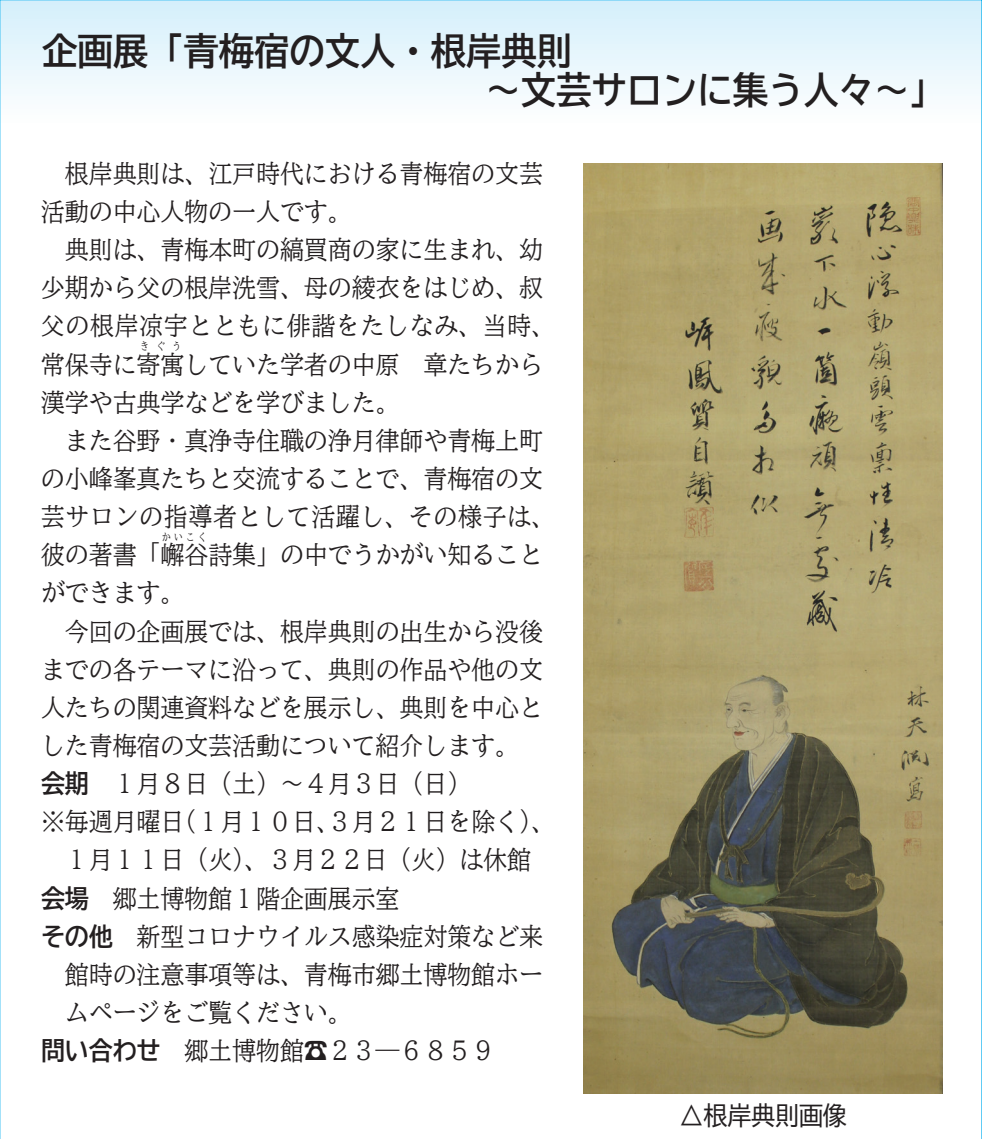 企画展「青梅宿の文人・根岸典則
～文芸サロンに集う人々～」
根岸典則は、江戸時代における青梅宿の文芸
活動の中心人物の一人です。
典則は、青梅本町の縞買商の家に生まれ、幼
少期から父の根岸洗雪、母の綾衣をはじめ、叔
父の根岸凉宇とともに俳諧をたしなみ、当時、
きぐう
常保寺に寄寓していた学者の中原　章たちから
漢学や古典学などを学びました。
また谷野・真浄寺住職の浄月律師や青梅上町
の小峰峯真たちと交流することで、青梅宿の文
芸サロンの指導者として活躍し、その様子は、
かいこく
彼の著書「嶰谷詩集」の中でうかがい知ること
ができます。
今回の企画展では、根岸典則の出生から没後
までの各テーマに沿って、典則の作品や他の文
人たちの関連資料などを展示し、典則を中心と
した青梅宿の文芸活動について紹介します。
会期　１月８日（土）～４月３日（日）
※毎週月曜日（１月１０日、３月２１日を除く）、
１月１１日（火）、３月２２日（火）は休館
会場　郷土博物館１階企画展示室
その他　新型コロナウイルス感染症対策など来
館時の注意事項等は、青梅市郷土博物館ホー
ムページをご覧ください。
問い合わせ　郷土博物館☎２３―６８５９
隠心浮動嶺頭雲稟性清冷
巌下水一箇癡頑無處蔵
画成疲貌多相似
鳳質自讃
林天
寫
△根岸典則画像